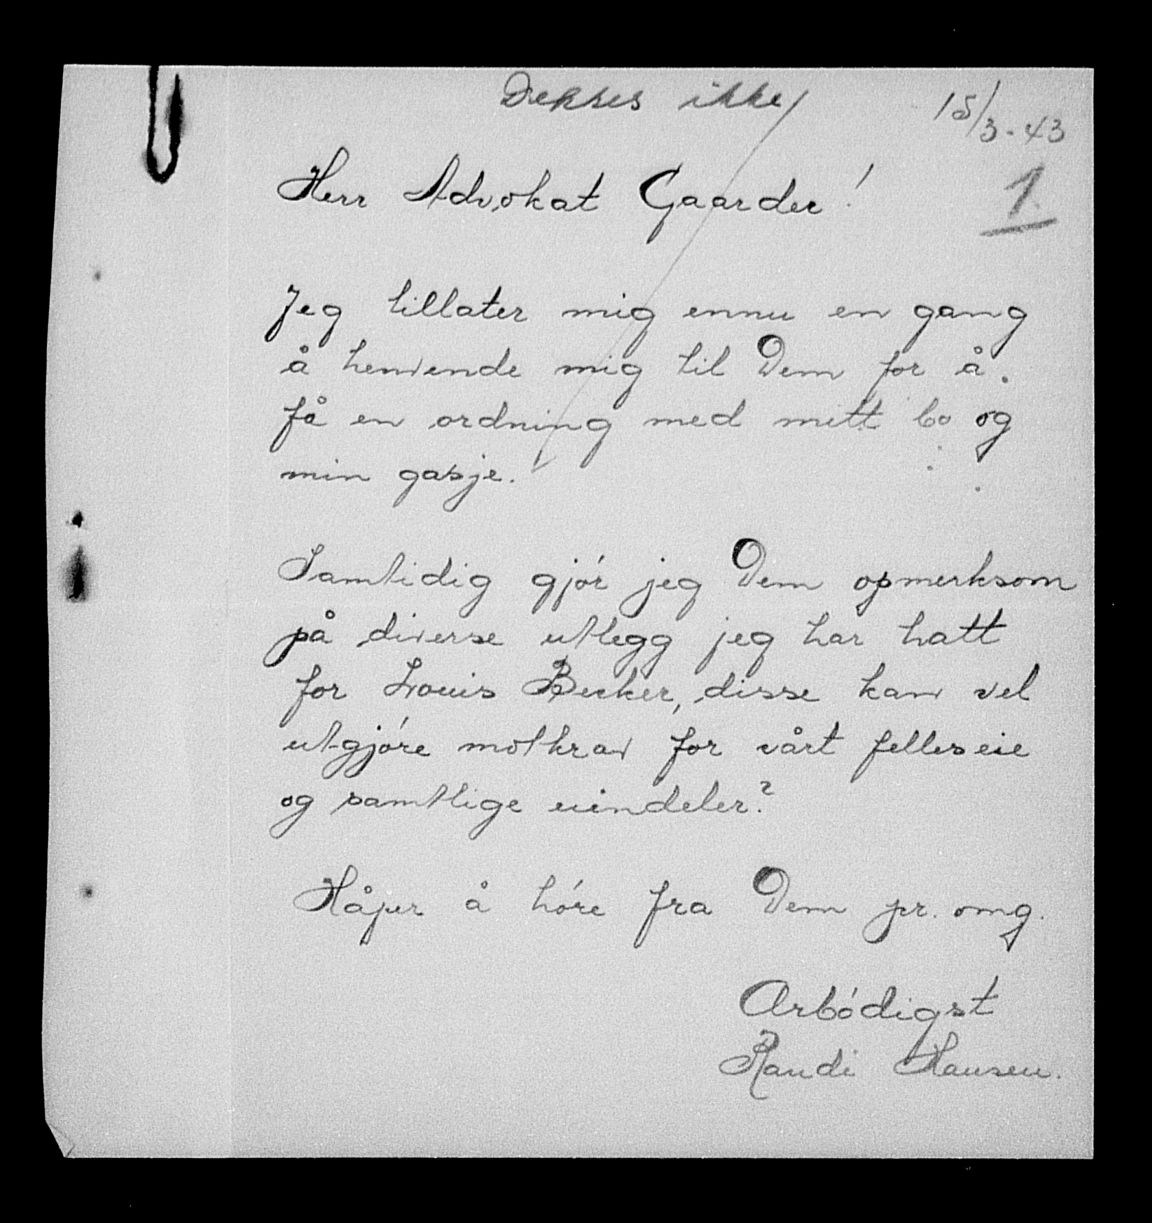 Dekses ikke
15/3-43
1.
Herr Advokat Gaarder!
Jeg tillater mig ennu en gang
å henvende mig til Dem for å
få en ordning med mitt bo og
min gasje.
Samtidig gjør jeg Dem opmerksom
på diverse utlegg jeg har hatt
for Louis Becker, disse kan vel
utgjøre motkrav for vårt felleseie
og samtlige eiendeler?
Håper å høre fra Dem pr. omg.
Ærbødigst
Randi Hansen.